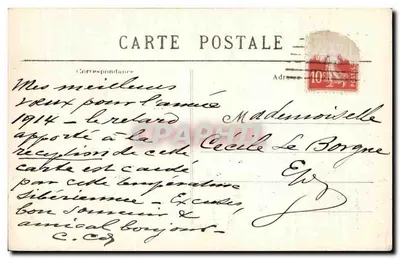 CARTE POSTALE
Correspondance
Adresse
10
Mes meilleurs
vœux pour l'année
1914 - le retard
apporté à la
réception de cette
carte est causé
par cette température
sibérienne - Excuses,
bon souvenir &
amical bonjour -
Mademoiselle
Cécile Le Borgne